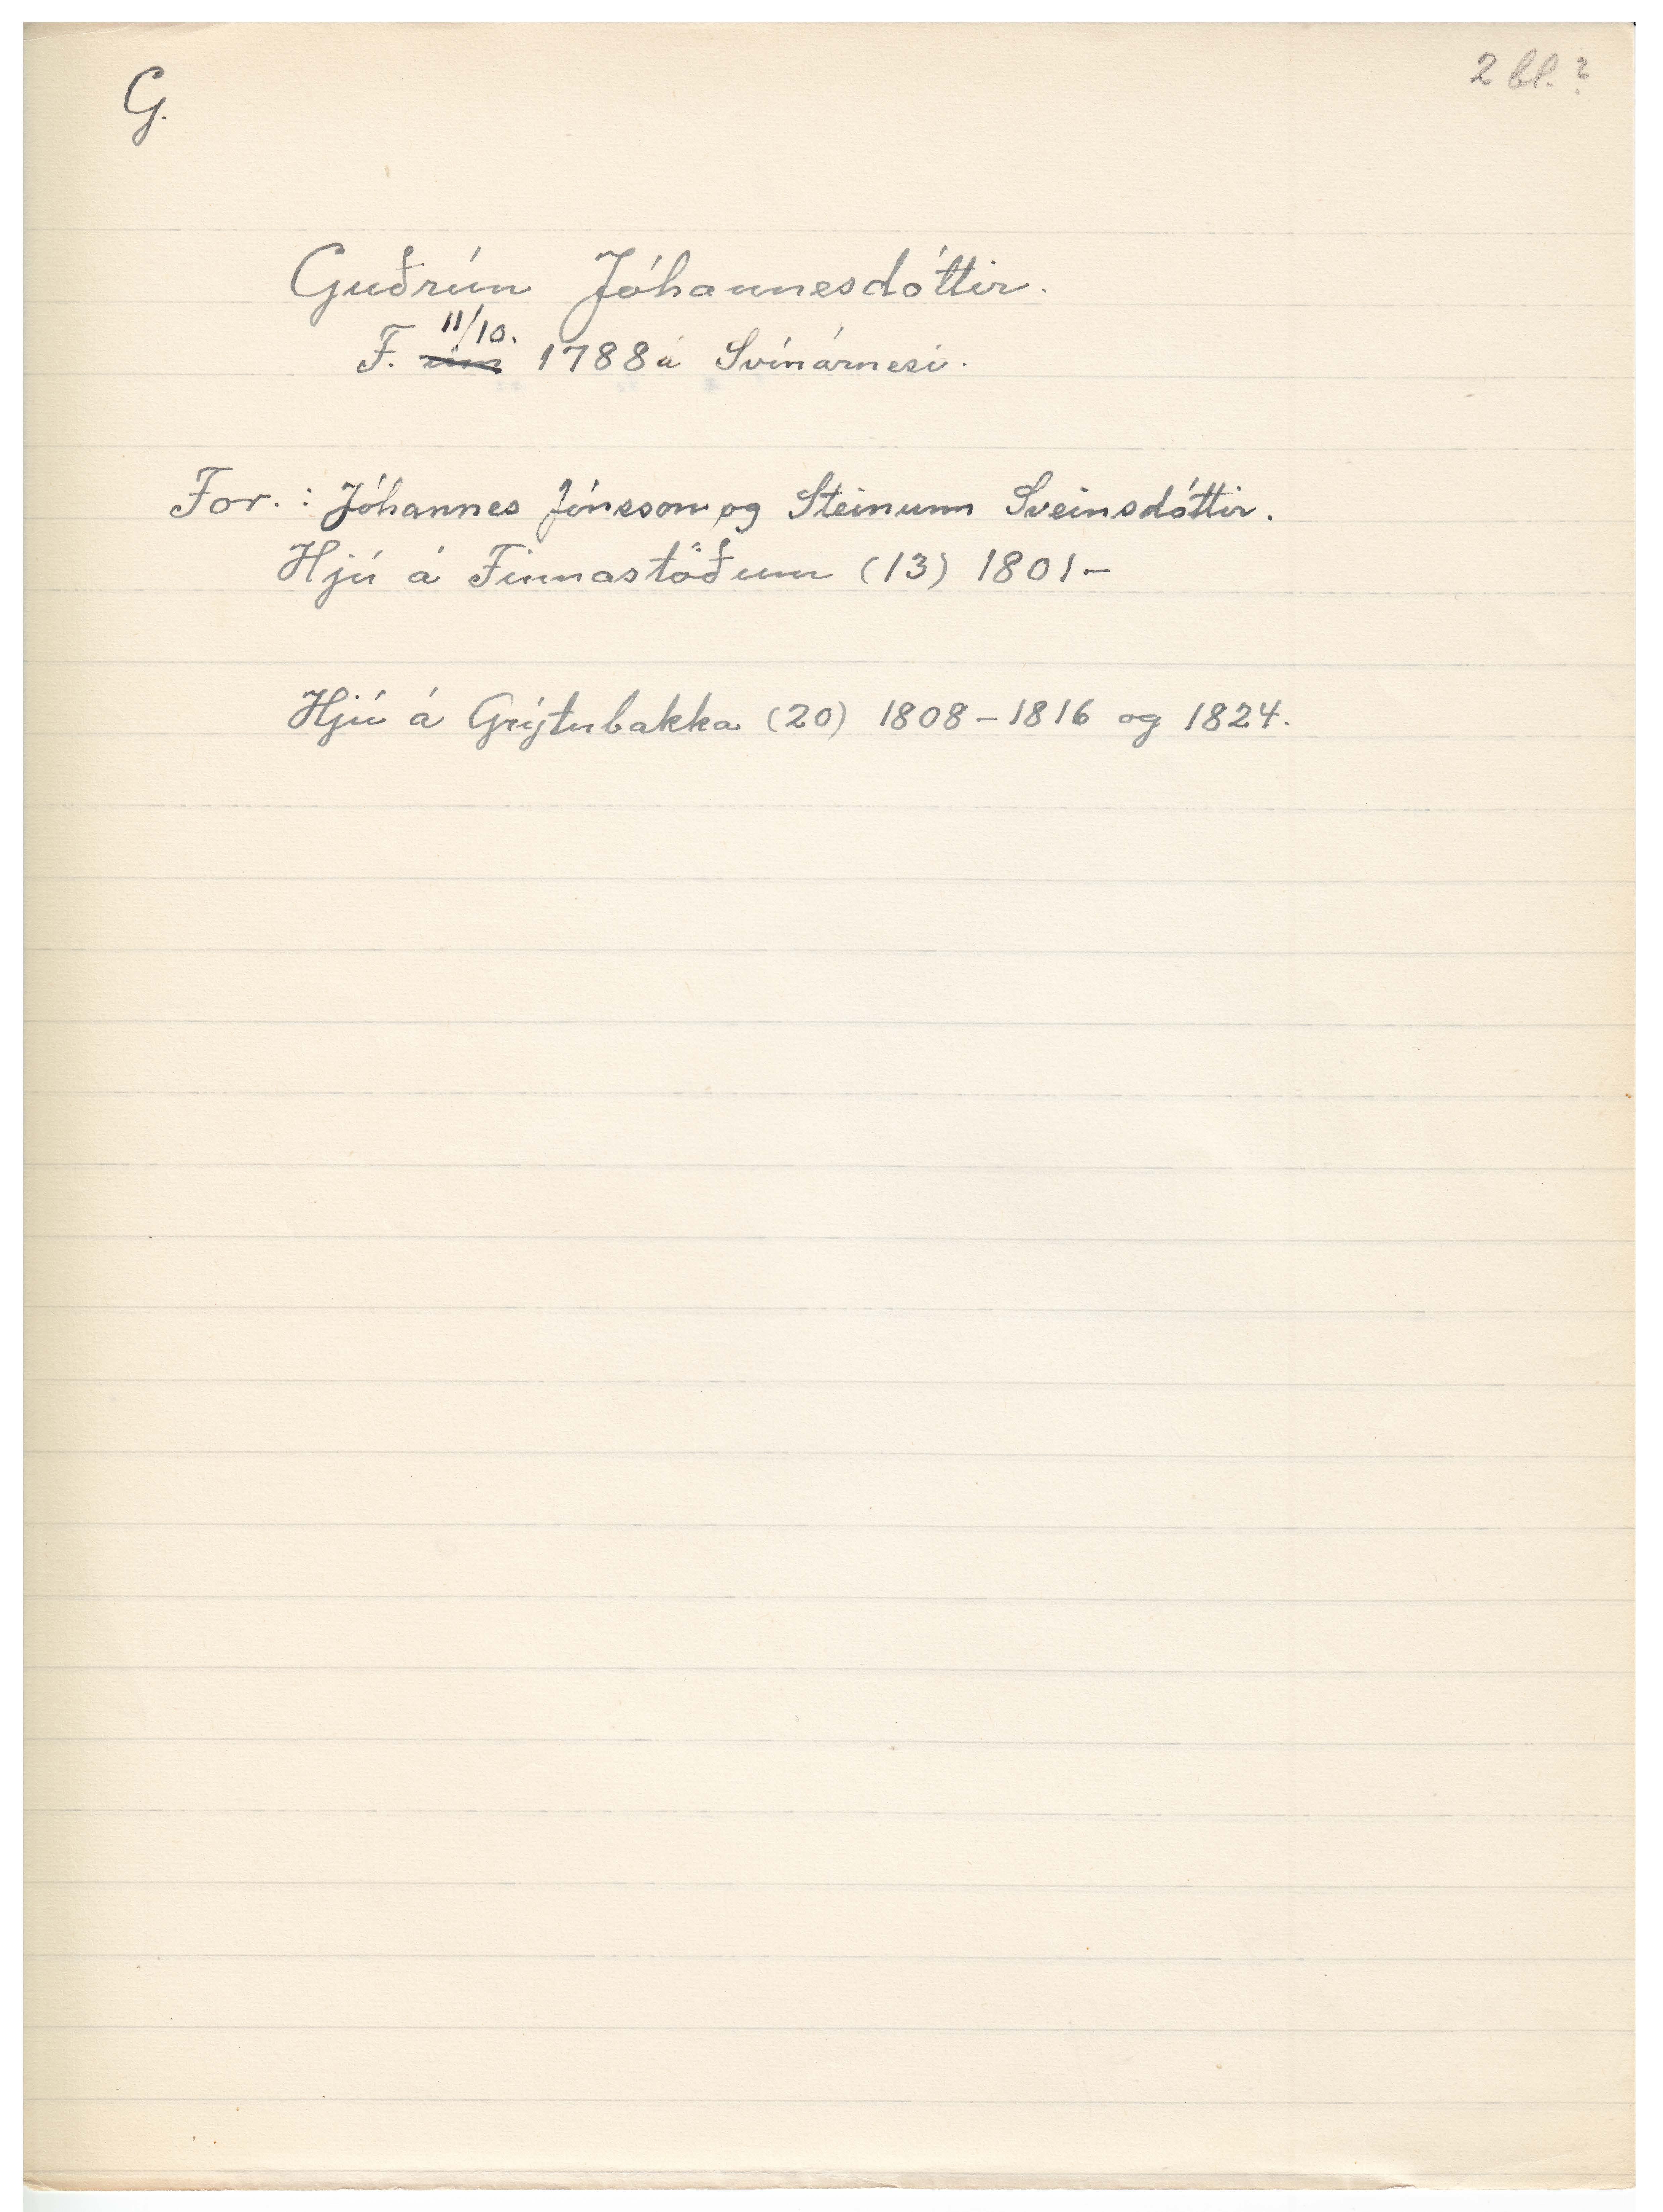 G.
2 bl. ?
Guðrún Jóhannesdóttir.
11/10.
F. um 1788 á Svínárnesi.
For. : Jóhannes Jónsson og Steinunn Sveinsdóttir.
Hjú á Finnastöðum (13) 1801-
Hjú á Grýtubakka (20) 1808-1816 og 1824.